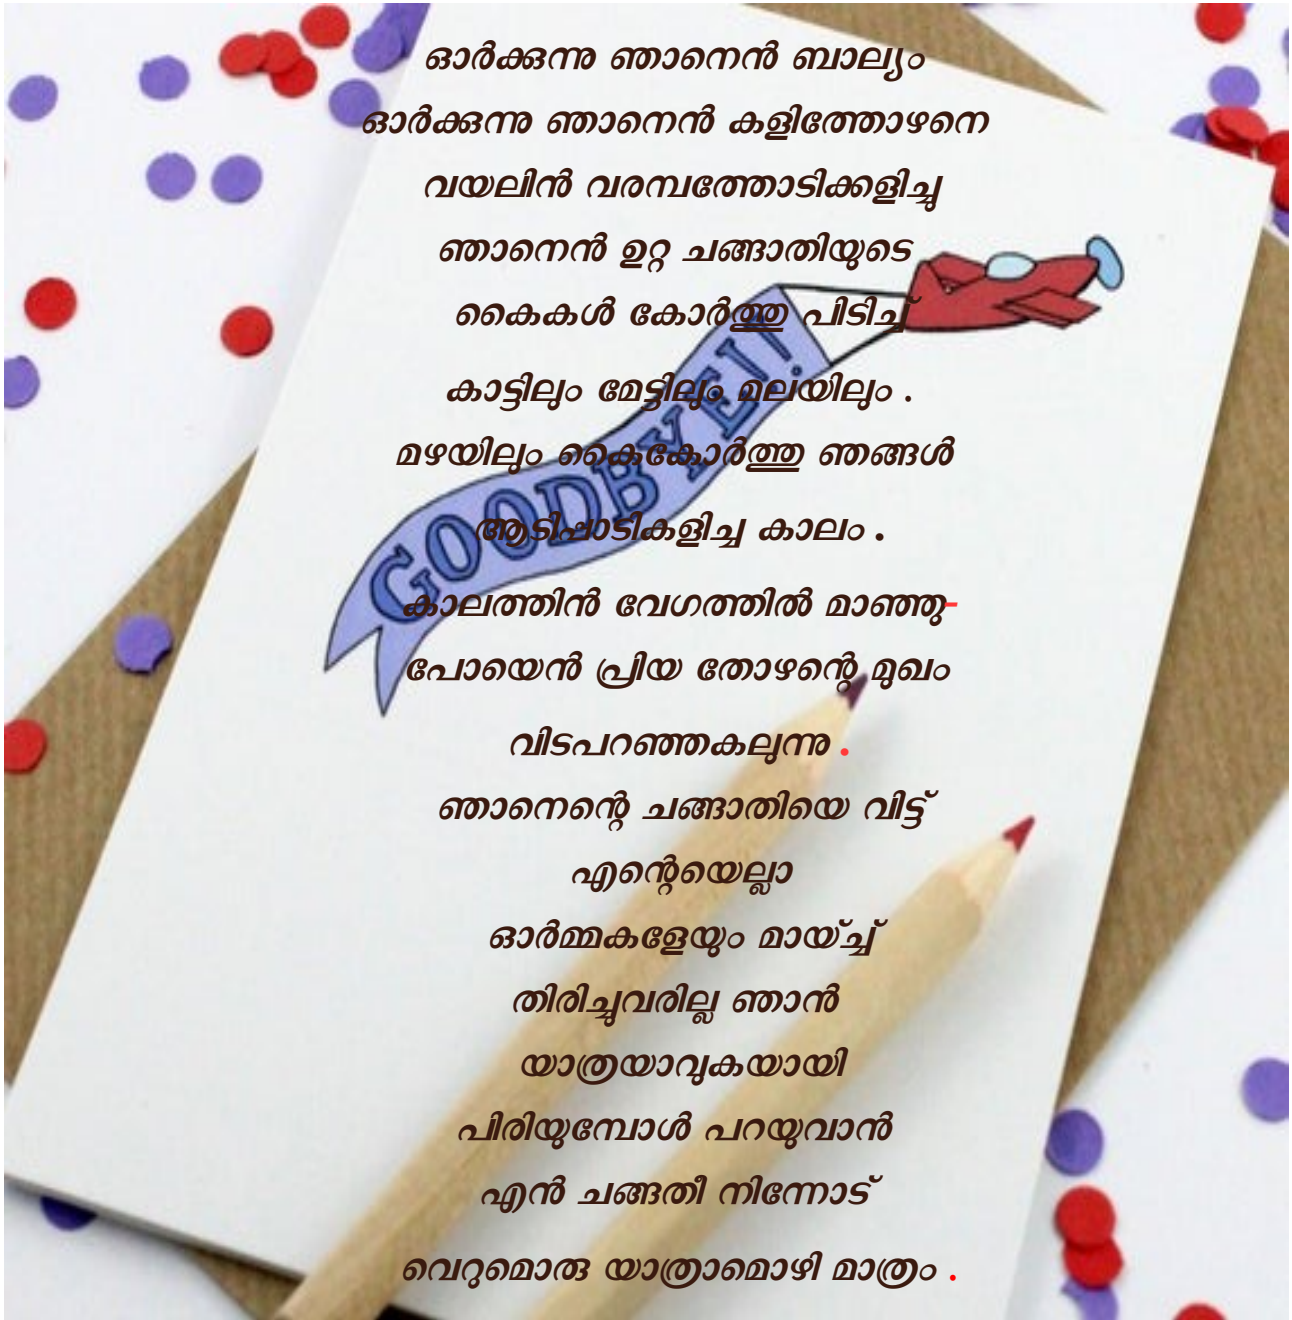 ഓർക്കുന്നു ഞാനെൻ ബാല്യം
ഓർക്കുന്നു ഞാനെൻ കളിത്തോഴനെ
വയലിൻ വരമ്പത്തോടിക്കളിച്ചു
ഞാനെൻ ഉറ്റ ചങ്ങാതിയുടെ
കൈകൾ കോർത്തു പിടിച്ച്
കാട്ടിലും മേട്ടിലും മലയിലും .
മഴയിലും കൈകോർത്തു ഞങ്ങൾ
ആടിപ്പാടികളിച്ച കാലം .
കാലത്തിൻ വേഗത്തിൽ മാഞ്ഞു-
പോയെൻ പ്രിയ തോഴന്റെ മുഖം
വിടപറഞ്ഞകലുന്നു .
ഞാനെന്റെ ചങ്ങാതിയെ വിട്ട്
എന്റെയെല്ലാ
ഓർമ്മകളേയും മായ്ച്ച്
തിരിച്ചുവരില്ല ഞാൻ
യാത്രയാവുകയായി
പിരിയുമ്പോൾ പറയുവാൻ
എൻ ചങ്ങതീ നിന്നോട്
വെറുമൊരു യാത്രാമൊഴി മാത്രം .
GOODBYE!!